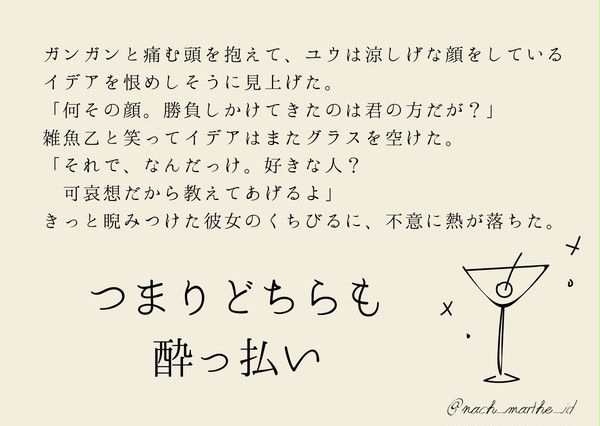 ガンガンと痛む頭を抱えて、ユウは涼しげな顔をしている
イデアを恨めしそうに見上げた。
「何その顔。勝負しかけてきたのは君の方だが？」
雑魚乙と笑ってイデアはまたグラスを空けた。
「それで、なんだっけ。好きな人？
可哀想だから教えてあげるよ」
きっと睨みつけた彼女のくちびるに、不意に熱が落ちた。
つまりどちらも
酔っ払い
@nach_marthe_id